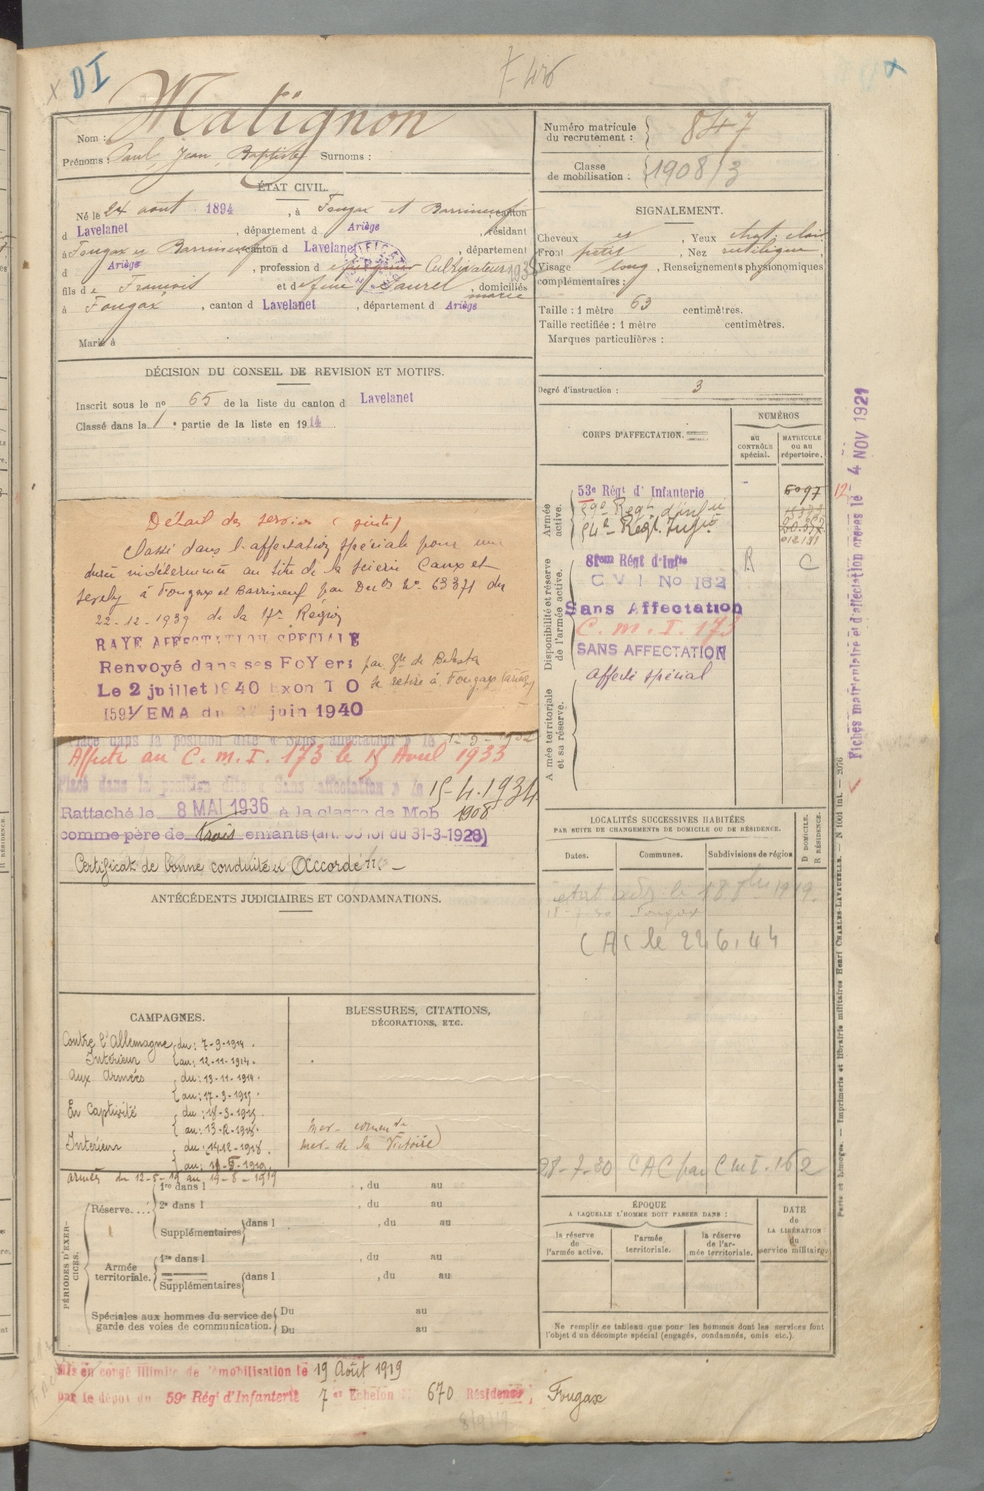 DI
Nom : Matignon
Prénoms : Paul, Jean, Baptiste Surnoms :
ÉTAT CIVIL.
Né le 24 août 1894, à Fougax et Barrineuf, canton
d Lavelanet, département d Ariège, résidant
à Fougax et Barrineuf canton d Lavelanet, département
d Ariège, profession d Cultivateur
fils de François et de Sauret, domiciliés
à Fougax, canton d Lavelanet, département d Ariège
Marié à
DÉCISION DU CONSEIL DE REVISION ET MOTIFS.
Inscrit sous le no 65 de la liste du canton d Lavelanet
Classé dans la 1e partie de la liste en 1914
Détail des services (suite)
Classé dans l'affectation spéciale pour une
durée indéterminée au titre de la Scierie Caux et
à Fougax et Barrineuf par No 63371 du
22-12-1939 de la 17e Région
RAYÉ AFFECTATION SPECIALE
Renvoyé dans ses FoYers
Le 2 juillet 1940 Exon T O se retire à Fougax
1591/EMA du juin 1940
Affecté au C.m.I. 173 le 15 Avril 1933
Placé dans la position dite « Sans affectation » le 15-4-1934
Rattaché le 8 MAI 1936 à la classe de Mob 1908
comme père de trois enfants (art. 58 loi du 31-3-1928)
Certificat de bonne conduite "Accordé" -
ANTÉCÉDENTS JUDICIAIRES ET CONDAMNATIONS.
CAMPAGNES.
Contre l'Allemagne du : 7-9-1914.
Intérieur au : 12-11-1914.
Aux Armées du : 13-11-1914.
au : 17-3-1915
En Captivité du : 18-3-1915
au : 13-12-1918
Intérieur du : 14-12-1918.
BLESSURES, CITATIONS,
DÉCORATIONS, ETC.
mer de la Victoire
PÉRIODES D'EXERCICES.
Réserve.... 1re dans l , du au
2e dans l , du au
Supplémentaires dans l , du au
Armée territoriale. 1re dans l , du au
Supplémentaires dans l , du au
Spéciales aux hommes du service de garde des voies de communication. Du au
Du au
Mis en congé illimité de démobilisation le 19 Août 1919
par le dépôt du 59e Régt d'Infanterie 7e Echelon N° 670 Résidence, Fougax
Numéro matricule du recrutement : 847
Classe de mobilisation : 1908/3
SIGNALEMENT.
Cheveux , Yeux
Front petit, Nez rectiligne,
Visage long, Renseignements physionomiques
complémentaires :
Taille : 1 mètre 63 centimètres.
Taille rectifiée : 1 mètre centimètres.
Marques particulières :
Degré d'instruction : 3
CORPS D'AFFECTATION.
NUMÉROS
au CONTRÔLE spécial.
MATRICULE ou au répertoire.
Armée active.
53e Régt d'Infanterie
59e Régt d'Infie
Disponibilité et réserve de l'armée active.
81eme Régt d'Infie R C
C V I No 162
Sans Affectation
C. m. I. 173
SANS AFFECTATION
Affecté spécial
Armée territoriale et sa réserve.
LOCALITÉS SUCCESSIVES HABITÉES
PAR SUITE DE CHANGEMENTS DE DOMICILE OU DE RÉSIDENCE.
Dates.
Communes.
Subdivisions de région
D DOMICILE.
R RÉSIDENCE.
Fougax
CAC le 22 6.44
28-7-30 CAC par CMI.162
ÉPOQUE
A LAQUELLE L'HOMME DOIT PASSER DANS :
la réserve de l'armée active.
l'armée territoriale.
la réserve de l'armée territoriale.
DATE de LA LIBÉRATION du service militaire.
Ne remplir ce tableau que pour les hommes dont les services font
l'objet d'un décompte spécial (engagés, condamnés, omis etc.).
Fiches matriculaire et d'affectation créées le 4 NOV 1921
Paris et Limoges. — Imprimerie et librairie militaires Henri CHARLES-LAVAUZELLE.